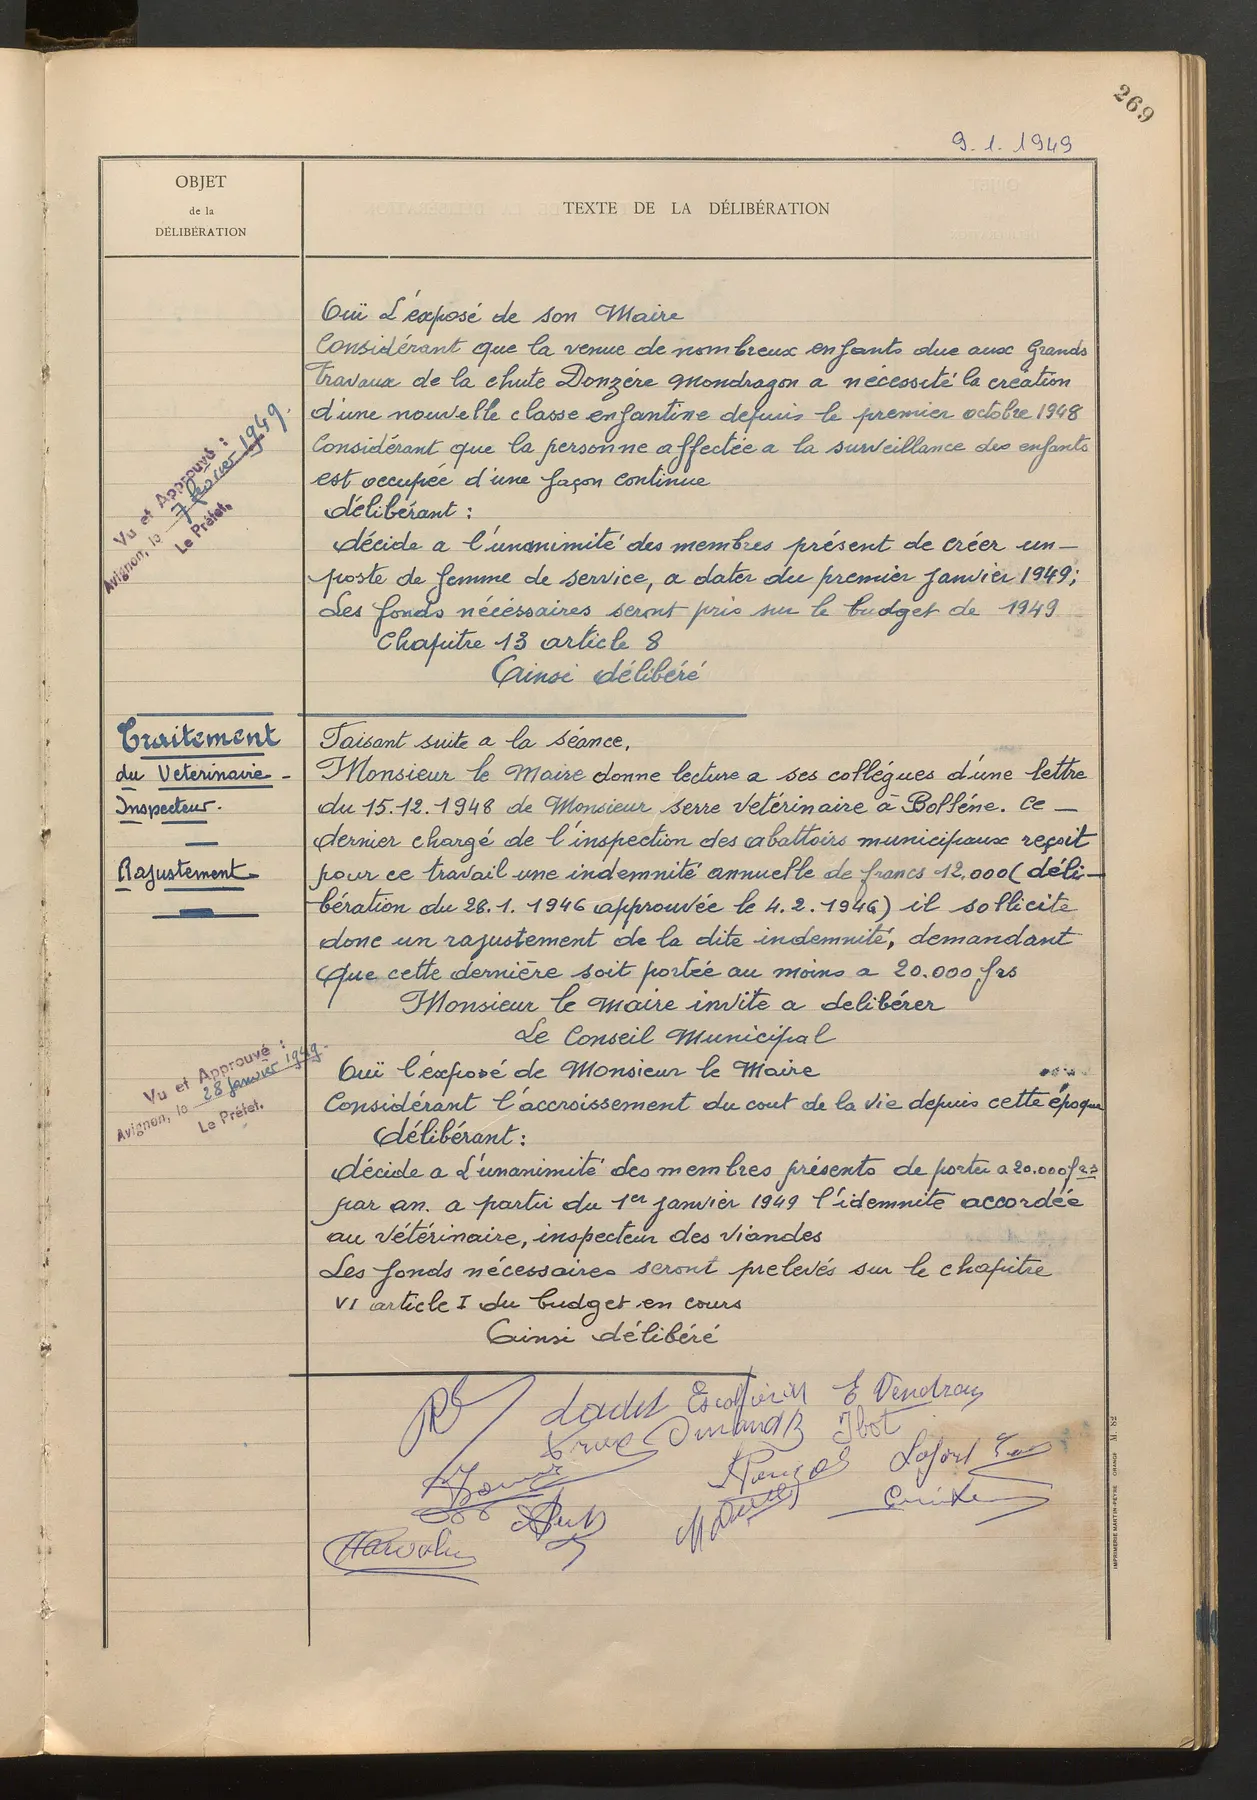 269
9.1.1949
OBJET
de la
DÉLIBÉRATION
TEXTE DE LA DÉLIBÉRATION
Ouï L'éxposé de son Maire
Considérant que la venue de nombreux enfants due aux Grands
Travaux de la chute Donzére Mondragon a nécessité la création
d'une nouvelle classe enfantine depuis le premier octobre 1948
Considérant que la personne affectée a la surveillance des enfants
est occupée d'une façon continue
délibérant :
décide a l'unanimité des membres présent de créer un-
poste de femme de service, a dater du premier Janvier 1949;
Les fonds nécéssaires seront pris sur le budget de 1949
Chapitre 13 article 8
Ainsi délibéré
Vu et Approuvé :
Avignon, le 7 février 1949.
Le Préfet.
Traitement
du Veterinaire -
Inspecteur.
Rajustement
Faisant suite a la séance,
Monsieur le Maire donne lecture a ses collégues d'une lettre
du 15.12.1948 de Monsieur Serre Vetérinaire à Bolléne. Ce -
dernier chargé de l'inspection des abattoirs municipaux reçoit
pour ce travail une indemnité annuelle de francs 12.000 (déli-
bération du 28.1.1946 approuvée le 4.2.1946) il sollicite
donc un rajustement de la dite indemnité, demandant
que cette derniére soit portée au moins a 20.000 frs
Monsieur le Maire invite a deliberer
Le Conseil Municipal
Ouï l'éxposé de Monsieur le Maire
Considérant l'accroissement du cout de la vie depuis cette époque
délibérant :
décide a L'unanimité des membres présents de porter a 20.000 frs
par an. a partir du 1er janvier 1949 l'idemnité accordée
au Vétérinaire, inspecteur des viandes
Les fonds nécessaires seront prelevés sur le chapitre
VI article I du budget en cours
Ainsi délibéré
Vu et Approuvé :
Avignon, le 28 Janvier 1949.
Le Préfet.
Ladet Escoffier E Vendran
Durand Ibot
Lafont
IMPRIMERIE MARTIN-PEYRE ORANGE M. 82